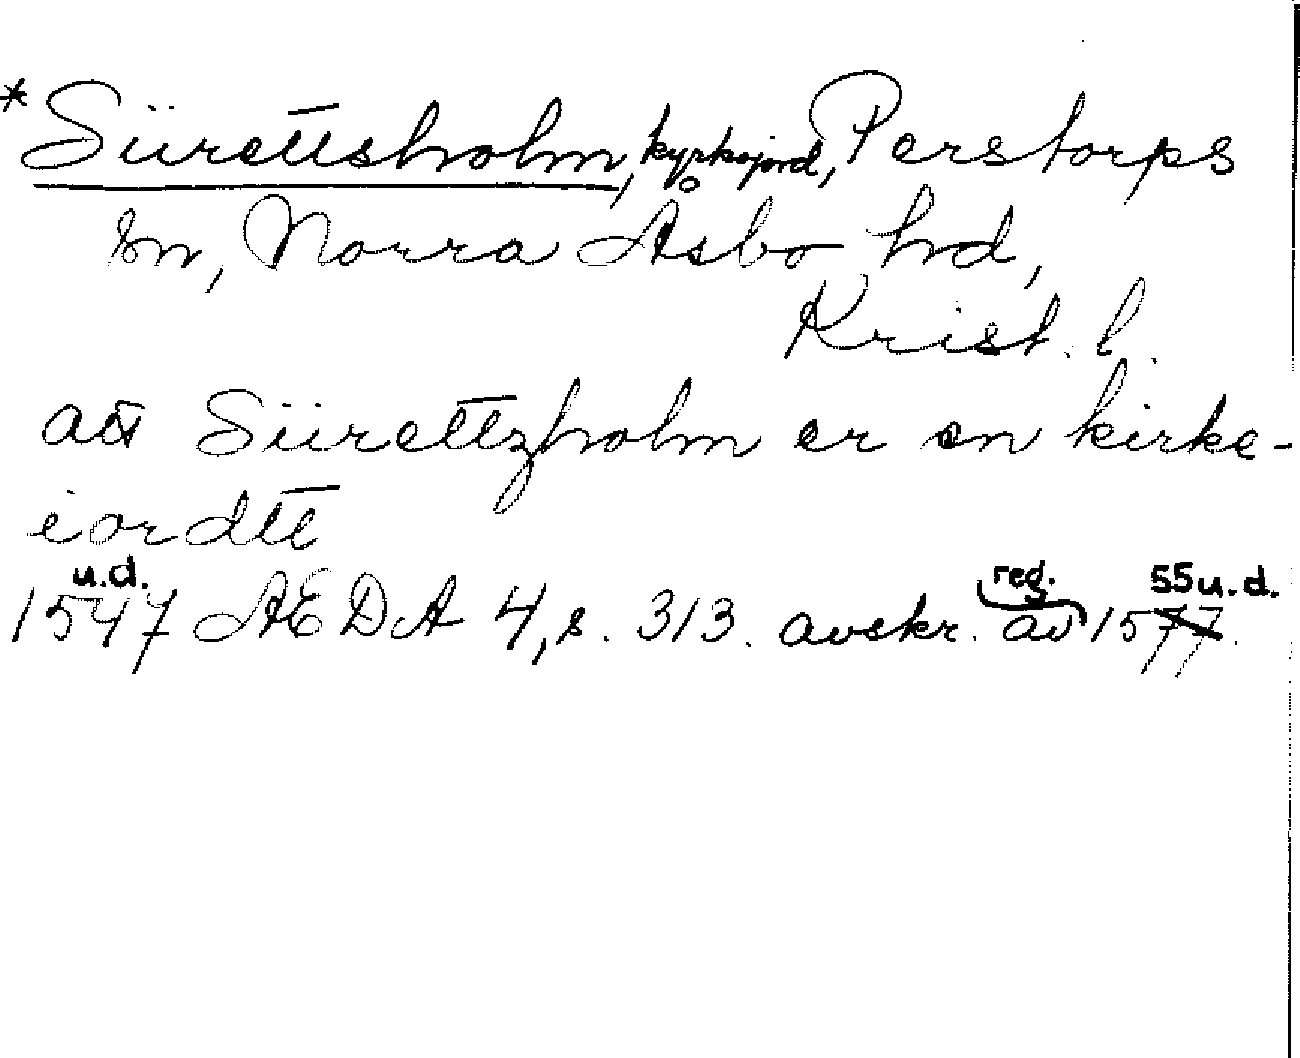 *Sürettsholm, kyrkojord, Perstorps
sn, Norra Åsbo hd,
Krist. l.
att Sürettzholm er en kirke-
iordtt
u.d.
1547 AEDA 4, s. 313. avskr. av reg. 1577. 55 u.d.